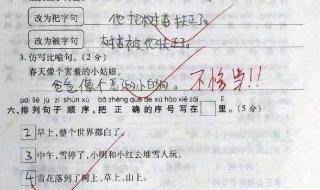 改为把字句 他把树苗扶正了。
改为被字句 树苗被他扶正了。
3.仿写比喻句。(2分)
春天像个害羞的小姑娘。
爸爸像个 不恰当!!
pái liè jù zǐ shùn xù bǎ zhèng què de xù hào xiě zài
六、排列句子顺序,把正确的序号写在 里。(5分)
2 早上,整个世界都白了。
3 中午,雪停了,小明和小红去堆雪人玩。
4 雪花落到了树上、草上、山上。